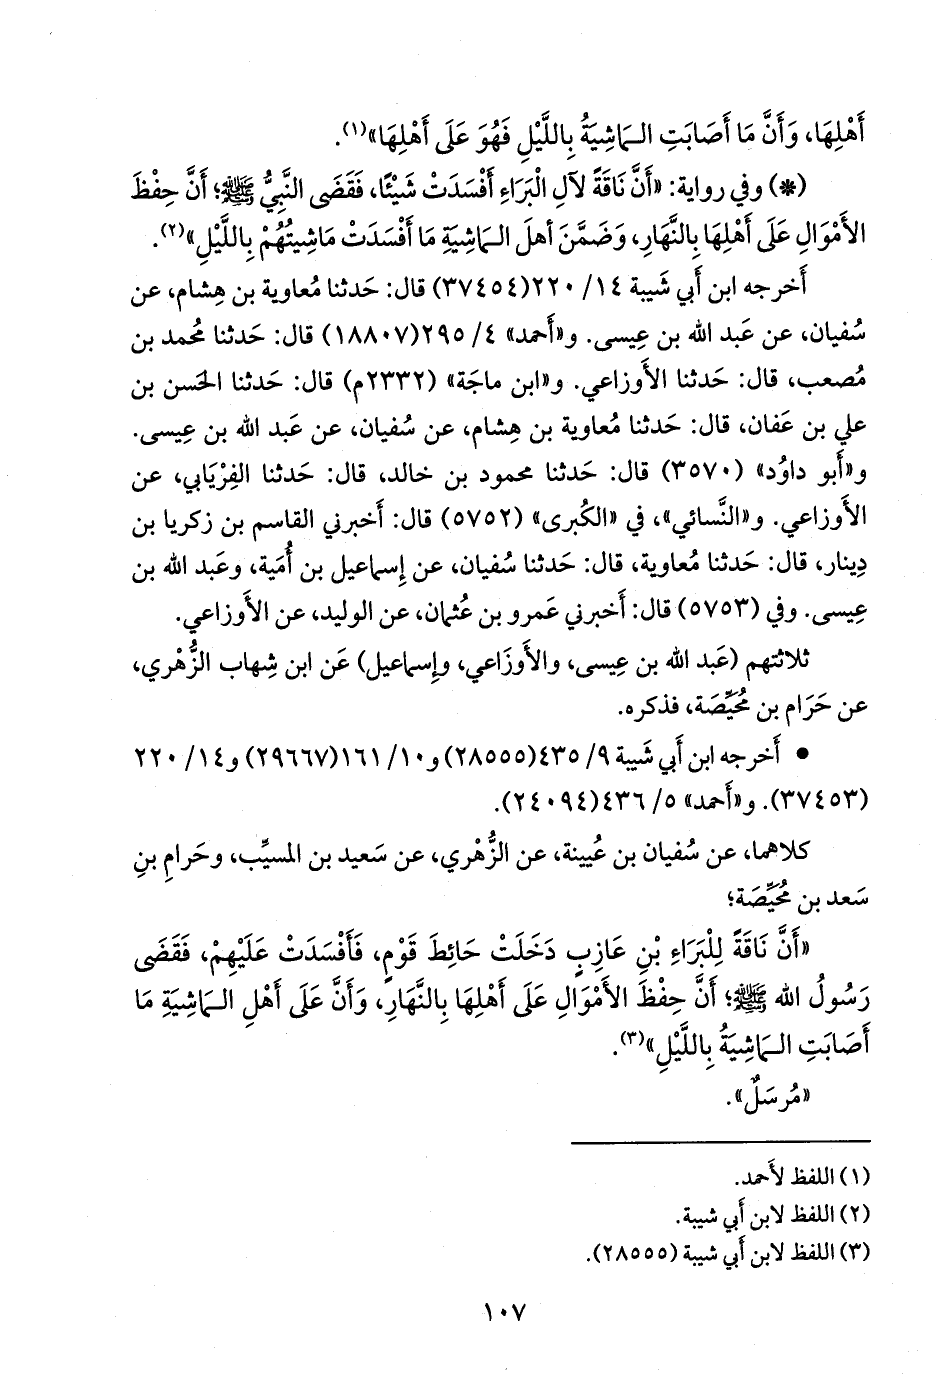 أَهْلِهَا، وَأَنَّ مَا أَصَابَتِ الـمَاشِيَةُ بِاللَّيْلِ فَهُوَ عَلَى أَهْلِهَا»(١).
(*) وفي رواية: «أَنَّ نَاقَةً لآلِ الْبَرَاءِ أَفْسَدَتْ شَيْئًا، فَقَضَى النَّبِيُّ ﷺ؛ أَنَّ حِفْظَ
الأَمْوَالِ عَلَى أَهْلِهَا بِالنَّهَارِ، وَضَمَّنَ أَهلَ الـمَاشِيَةِ مَا أَفْسَدَتْ مَاشِيَتُهُمْ بِاللَّيْلِ»(٢).
أَخرجه ابن أَبي شَيبة ١٤/ ٢٢٠(٣٧٤٥٤) قال: حَدثنا مُعاوية بن هِشام، عن
سُفيان، عن عَبد الله بن عِيسى. و«أَحمد» ٤/ ٢٩٥(١٨٨٠٧) قال: حَدثنا مُحمد بن
مُصعب، قال: حَدثنا الأَوزاعي. و«ابن ماجَة» (٢٣٣٢م) قال: حَدثنا الحَسن بن
علي بن عَفان، قال: حَدثنا مُعاوية بن هِشام، عن سُفيان، عن عَبد الله بن عِيسى.
و«أَبو داوُد» (٣٥٧٠) قال: حَدثنا محمود بن خالد، قال: حَدثنا الفِرْيَابي، عن
الأَوزاعي. و«النَّسائي»، في «الكُبرى» (٥٧٥٢) قال: أَخبرني القاسم بن زكريا بن
دِينار، قال: حَدثنا مُعاوية، قال: حَدثنا سُفيان، عن إِسماعيل بن أُمَية، وعَبد الله بن
عِيسى. وفي (٥٧٥٣) قال: أَخبرني عَمرو بن عُثمان، عن الوليد، عن الأَوزاعي.
ثلاثتهم (عَبد الله بن عِيسى، والأَوزَاعي، وإِسماعيل) عَن ابن شِهاب الزُّهْري،
عن حَرَام بن مُحَيِّصَة، فذكره.
• أَخرجه ابن أَبي شَيبة ٩/ ٤٣٥(٢٨٥٥٥) و١٠/ ١٦١(٢٩٦٦٧) و١٤/ ٢٢٠
(٣٧٤٥٣). و«أَحمد» ٥/ ٤٣٦(٢٤٠٩٤).
كلاهما، عن سُفيان بن عُيينة، عن الزُّهْري، عن سَعيد بن المسيِّب، وحَرامِ بنِ
سَعد بن مُحَيِّصَة؛
«أَنَّ نَاقَةً لِلْبَرَاءِ بْنِ عَازِبٍ دَخَلَتْ حَائِطَ قَوْمٍ، فَأَفْسَدَتْ عَلَيْهِمْ، فَقَضَى
رَسُولُ الله ﷺ؛ أَنَّ حِفْظَ الأَمْوَالِ عَلَى أَهْلِهَا بِالنَّهَارِ، وَأَنَّ عَلَى أَهْلِ الـمَاشِيَةِ مَا
أَصَابَتِ الـمَاشِيَةُ بِاللَّيْلِ»(٣).
«مُرسَلٌ».
(١) اللفظ لأَحمد.
(٢) اللفظ لابن أَبي شيبة.
(٣) اللفظ لابن أَبي شيبة (٢٨٥٥٥).
١٠٧